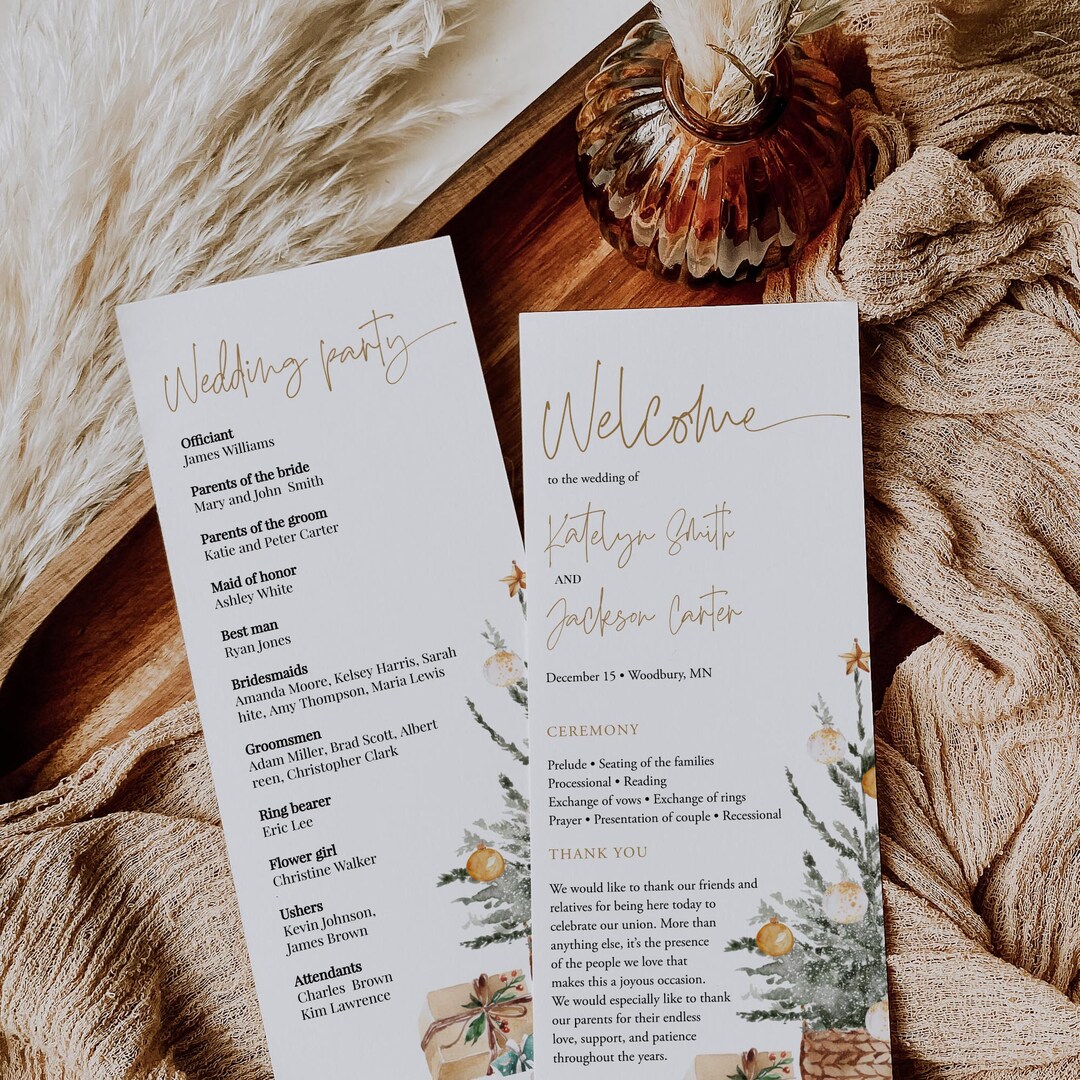 Wedding party
Officiant
James Williams
Parents of the bride
Mary and John Smith
Parents of the groom
Katie and Peter Carter
Maid of honor
Ashley White
Best man
Ryan Jones
Bridesmaids
Amanda Moore, Kelsey Harris, Sarah
hite, Amy Thompson, Maria Lewis
Groomsmen
Adam Miller, Brad Scott, Albert
reen, Christopher Clark
Ring bearer
Eric Lee
Flower girl
Christine Walker
Ushers
Kevin Johnson,
James Brown
Attendants
Charles Brown
Kim Lawrence
Welcome
to the wedding of
Katelyn Smith
AND
Jackson Carter
December 15 • Woodbury, MN
CEREMONY
Prelude • Seating of the families
Processional • Reading
Exchange of vows • Exchange of rings
Prayer • Presentation of couple • Recessional
THANK YOU
We would like to thank our friends and
relatives for being here today to
celebrate our union. More than
anything else, it's the presence
of the people we love that
makes this a joyous occasion.
We would especially like to thank
our parents for their endless
love, support, and patience
throughout the years.